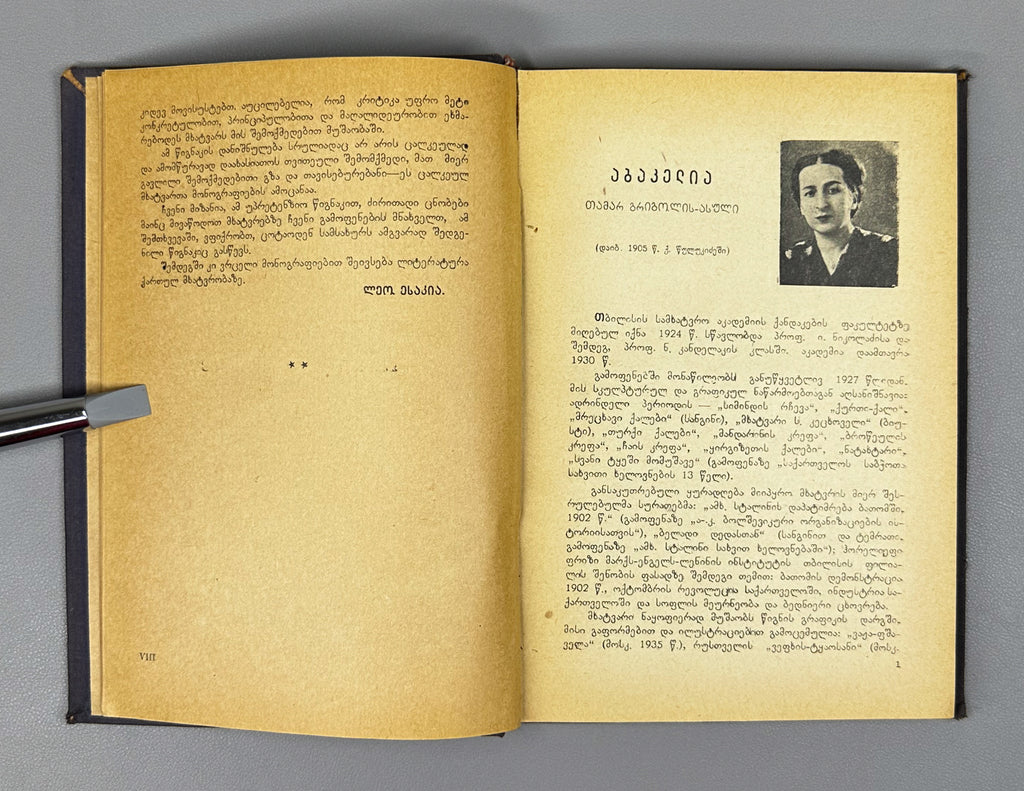 კიდევ მოვისუსტებთ. აუცილებელია, რომ კრიტიკა უფრო მეტი
კონკრეტულობით, პრინციპულობითა და მაღალიდეურობით ეხმა-
რებოდეს მხატვარს მის შემოქმედებით მუშაობაში.
ამ წიგნაკის დანიშნულება სრულიადაც არ არის ცალკეულად
და ამომწურავად დაახასიათოს თვითეული შემომქმედი, მათ მიერ
გავლილი შემოქმედებითი გზა და თავისებურებანი—ეს ცალკეულ
მხატვართა მონოგრაფიების ამოცანაა.
ჩვენი მიზანია, ამ უპრეტენზიო წიგნაკით, ძირითადი ცნობები
მაინც მივაწოდოთ მხატვრებზე ჩვენი გამოფენების მნახველთ, ამ
შემთხვევაში, ვფიქრობთ, ცოტაოდენ სამსახურს ამგვარად შედგე-
ნილი წიგნაკიც გასწევს.
შემდეგში კი ვრცელი მონოგრაფიებით შეივსება ლიტერატურა
ქართულ მხატვრობაზე.
ლეო ესაკია.
**
VIII
აბაკელია
თამარ გრიგოლის-ასული
(დაიბ. 1905 წ. ქ. წულუკიძეში)
თბილისის სამხატვრო აკადემიის ქანდაკების ფაკულტეტზე
მიღებულ იქნა 1924 წ. სწავლობდა პროფ. ი. ნიკოლაძისა და
შემდეგ, პროფ. ნ. კანდელაკის კლასში. აკადემია დაამთავრა
1930 წ.
გამოფენებში მონაწილეობს განუწყვეტლივ 1927 წლიდან.
მის სკულპტურულ და გრაფიკულ ნაწარმოებთაგან აღსანიშნავია:
ადრინდელი პერიოდის — „სიმინდის რჩევა“, „ქურთი-ქალი“,
„მრეცხავი ქალები“ (სანგინი), „მხატვარი ს. კეცხოველი“ (ბიუ-
სტი), „თურქი ქალები“, „მანდარინის კრეფა“, „ბროწეულის
კრეფა“, „ჩაის კრეფა“, „ყირგიზეთის ქალები“, „ნატახტარი“,
„სვანი ტყეში მომუშავე“ (გამოფენაზე „საქართველოს საბჭოთა
სახვითი ხელოვნების 13 წელი).
განსაკუთრებული ყურადღება მიიპყრო მხატვრის მიერ შეს-
რულებულმა სურათებმა: „ამხ. სტალინის დაპატიმრება ბათომში,
1902 წ.“ (გამოფენაზე „ა-კ. ბოლშევიკური ორგანიზაციების ის-
ტორიისათვის“), „ბელადი დედასთან“ (სანგინით და ტემრათი,
გამოფენაზე „ამხ. სტალინი სახვით ხელოვნებაში“); ჰორელიეფი
ფრიზი მარქს-ენგელს-ლენინის ინსტიტუტის თბილისის ფილია-
ლის შენობის ფასადზე შემდეგი თემით: ბათომის დემონსტრაცია
1902 წ., ოქტომბრის რევოლუცია საქართველოში, ინდუსტრია სა-
ქართველოში და სოფლის მეურნეობა და ბედნიერი ცხოვრება.
მხატვარი ნაყოფიერად მუშაობს წიგნის გრაფიკის დარგში.
მისი გაფორმებით და ილუსტრაციებით გამოცემულია: „ვაჟა-ფშა-
ველა“ (მოსკ. 1935 წ.), რუსთველის „ვეფხის-ტყაოსანი“ (მოსკ.
1